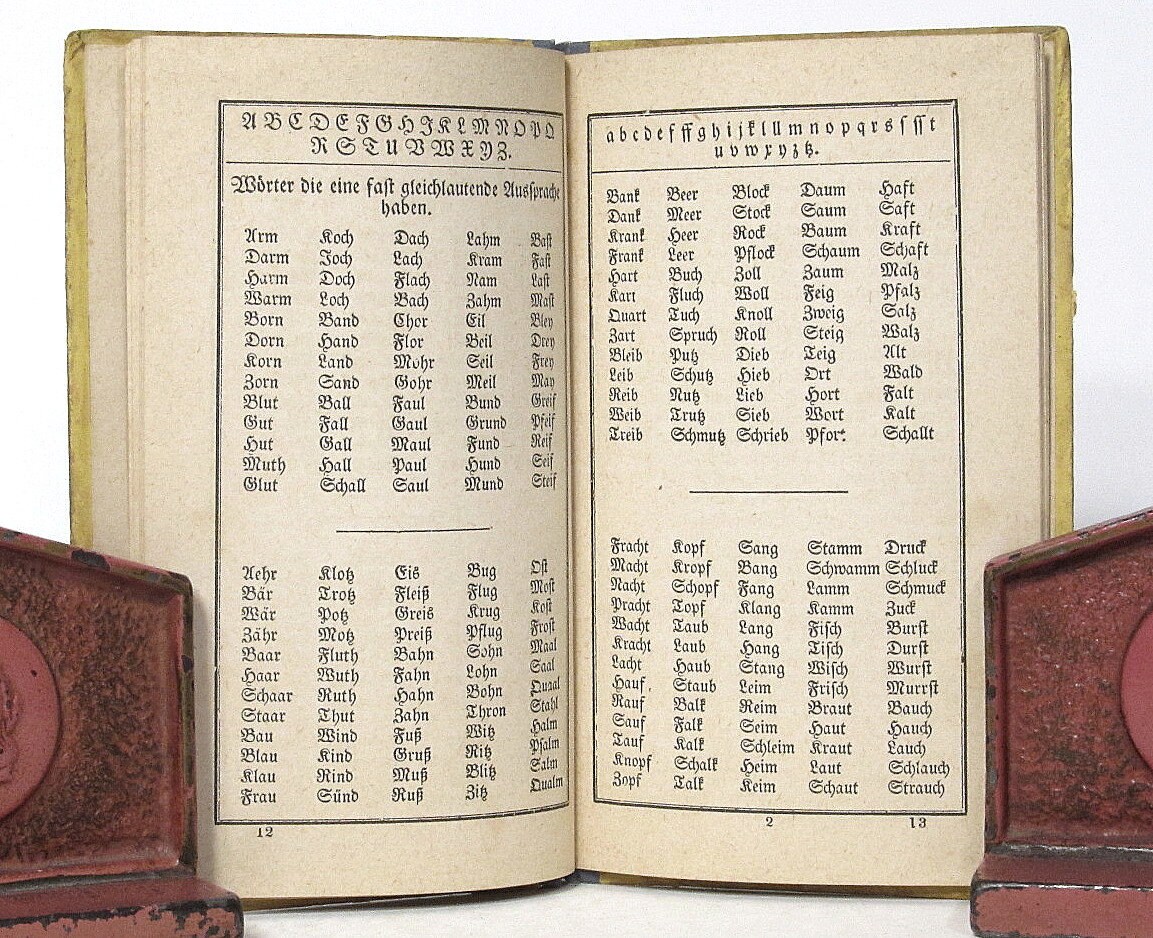 A B C D E F G H I K L M N O P Q
R S T U V W X Y Z.
Wörter die eine fast gleichlautende Aussprache
haben.
Arm Koch Dach Lahm Bast
Darm Joch Lach Kram Fast
Harm Doch Flach Nam Last
Warm Loch Bach Zahm Mast
Born Band Chor Eil Bley
Dorn Hand Flor Beil Drey
Korn Land Mohr Seil Frey
Zorn Sand Gohr Meil May
Blut Ball Faul Bund Greif
Gut Fall Gaul Grund Pfeif
Hut Gall Maul Fund Reif
Muth Hall Paul Hund Seif
Glut Schall Saul Mund Steif
Aehr Klotz Eis Bug Ost
Bär Trotz Fleiß Flug Most
Wär Potz Greis Krug Kost
Zähr Motz Preiß Pflug Frost
Baar Fluth Bahn Sohn Maal
Haar Wuth Fahn Lohn Saal
Schaar Ruth Hahn Bohn Quaal
Staar Thut Zahn Thron Stahl
Bau Wind Fuß Witz Halm
Blau Kind Gruß Ritz Psalm
Klau Rind Muß Blitz Salm
Frau Sünd Nuß Zitz Qualm
12
a b c d e f ff g h i j k l ll m n o p q r s ſ ſſ t
u v w x y z tz.
Bank Beer Block Daum Haft
Dank Meer Stock Saum Saft
Krank Heer Rock Baum Kraft
Frank Leer Pflock Schaum Schaft
Hart Buch Zoll Zaum Malz
Kart Fluch Woll Feig Pfalz
Quart Tuch Knoll Zweig Salz
Zart Spruch Roll Steig Walz
Bleib Putz Dieb Teig Alt
Leib Schutz Hieb Ort Wald
Reib Nutz Lieb Hort Falt
Weib Trutz Sieb Wort Kalt
Treib Schmutz Schrieb Pfort Schallt
Fracht Kopf Sang Stamm Druck
Macht Kropf Bang Schwamm Schluck
Nacht Schopf Fang Lamm Schmuck
Pracht Topf Klang Kamm Zuck
Wacht Taub Lang Fisch Burst
Kracht Laub Hang Tisch Durst
Lacht Haub Stang Wisch Wurst
Hauf Staub Leim Frisch Murrst
Rauf Balk Reim Braut Bauch
Sauf Falk Seim Haut Hauch
Tauf Kalk Schleim Kraut Lauch
Knopf Schalk Heim Laut Schlauch
Zopf Talk Keim Schaut Strauch
2 13